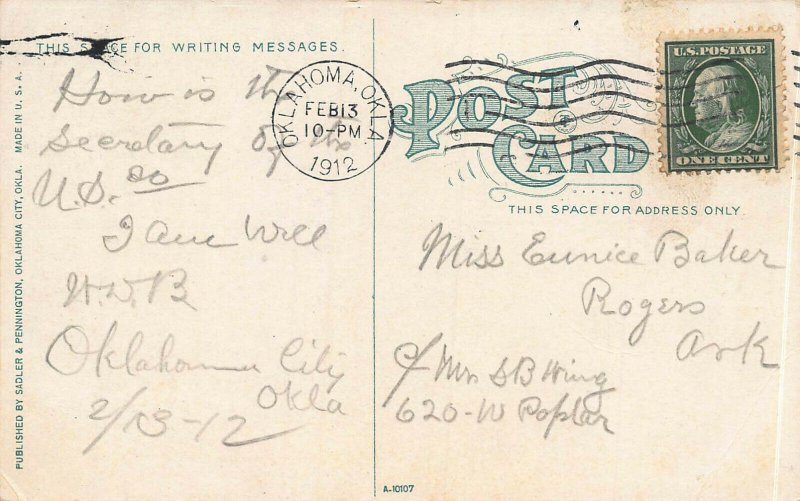 THIS SPACE FOR WRITING MESSAGES.
How is the
Secretary of the
U.S. so
I am Well
W.W.B
Oklahoma City
Okla
2/13-12
PUBLISHED BY SADLER & PENNINGTON, OKLAHOMA CITY, OKLA. MADE IN U.S.A.
OKLAHOMA, OKLA.
FEB 13
10-PM
1912
POST
CARD
U.S. POSTAGE
ONE CENT
THIS SPACE FOR ADDRESS ONLY.
Miss Eunice Baker
Rogers
Ark
c/ Mrs S B Wing
620-W Poplar
A-10107